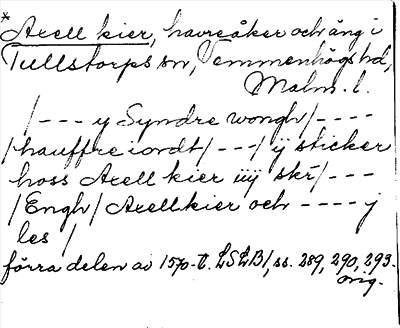 * Arell kier, havreåker och äng i
Tullstorps sn, Vemmenhögs hd,
Malm. l.
/--- y Syndre wongh/----
/hauffre iordt/---/ ÿ sticker
hoss Arell kier iiij skr̄/---
/Engh/ Arell kier och ---- j
les /
förra delen av 1570-t. LSLB1, ss. 289, 290, 293.
orig.